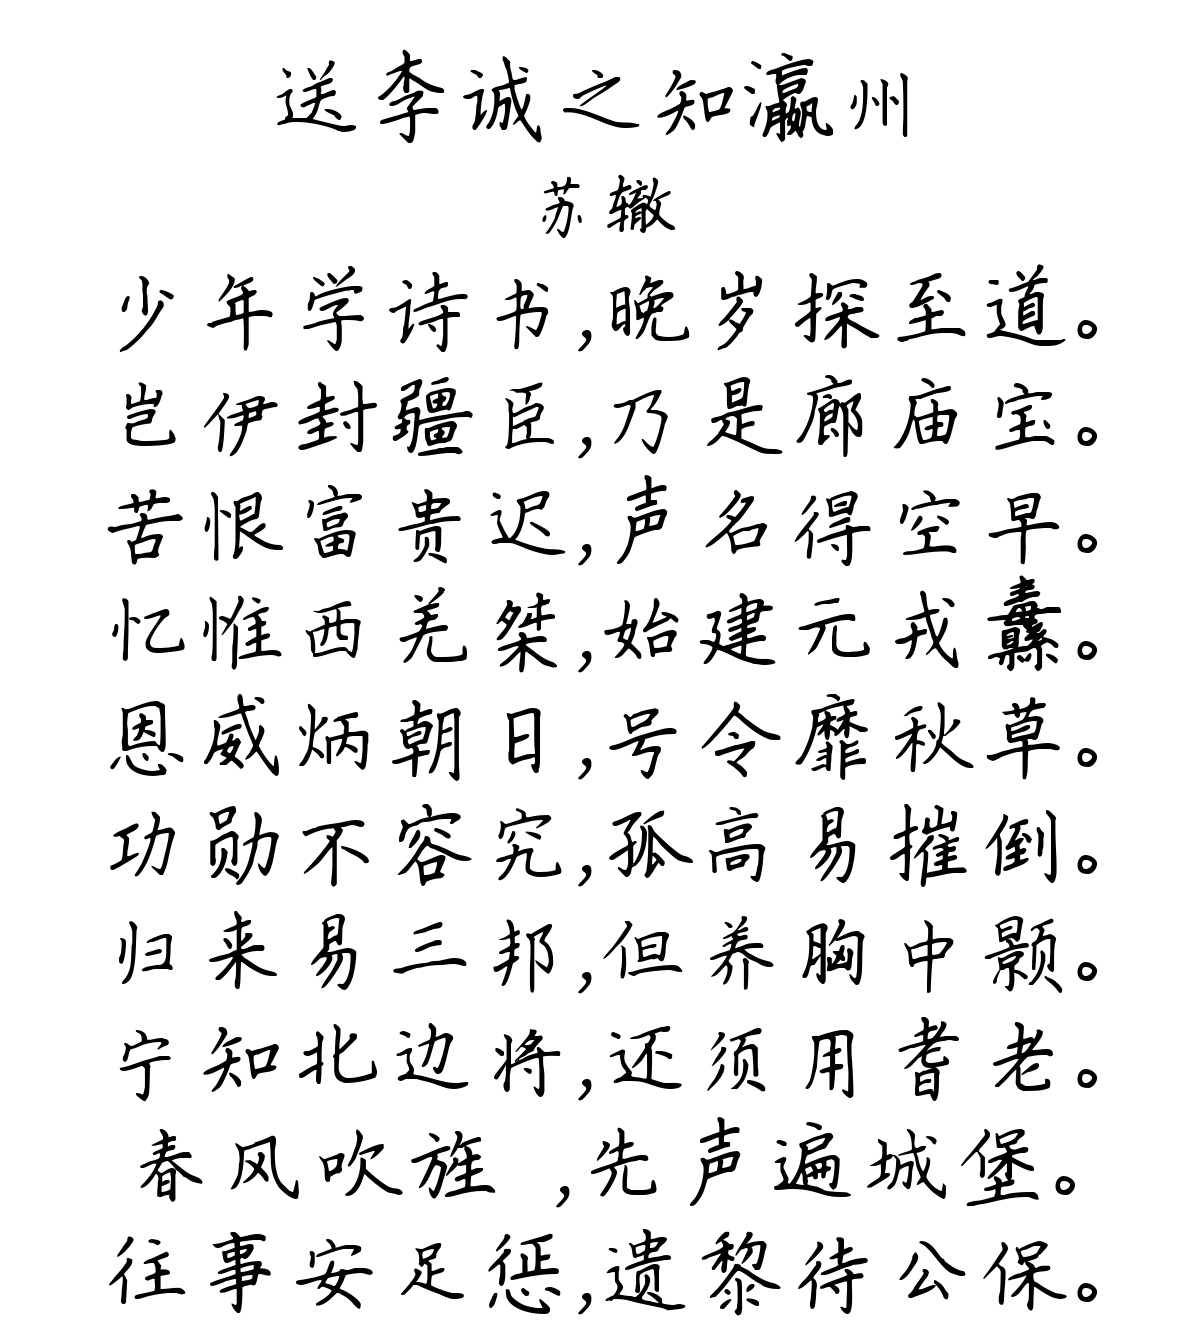 送李诚之知瀛州
苏辙
少年学诗书,晚岁探至道。
岂伊封疆臣,乃是廊庙宝。
苦恨富贵迟,声名得空早。
忆惟西羌桀,始建元戎纛。
恩威炳朝日,号令靡秋草。
功勋不容究,孤高易摧倒。
归来易三邦,但养胸中颢。
宁知北边将,还须用耆老。
春风吹旌 ,先声遍城堡。
往事安足惩,遗黎待公保。